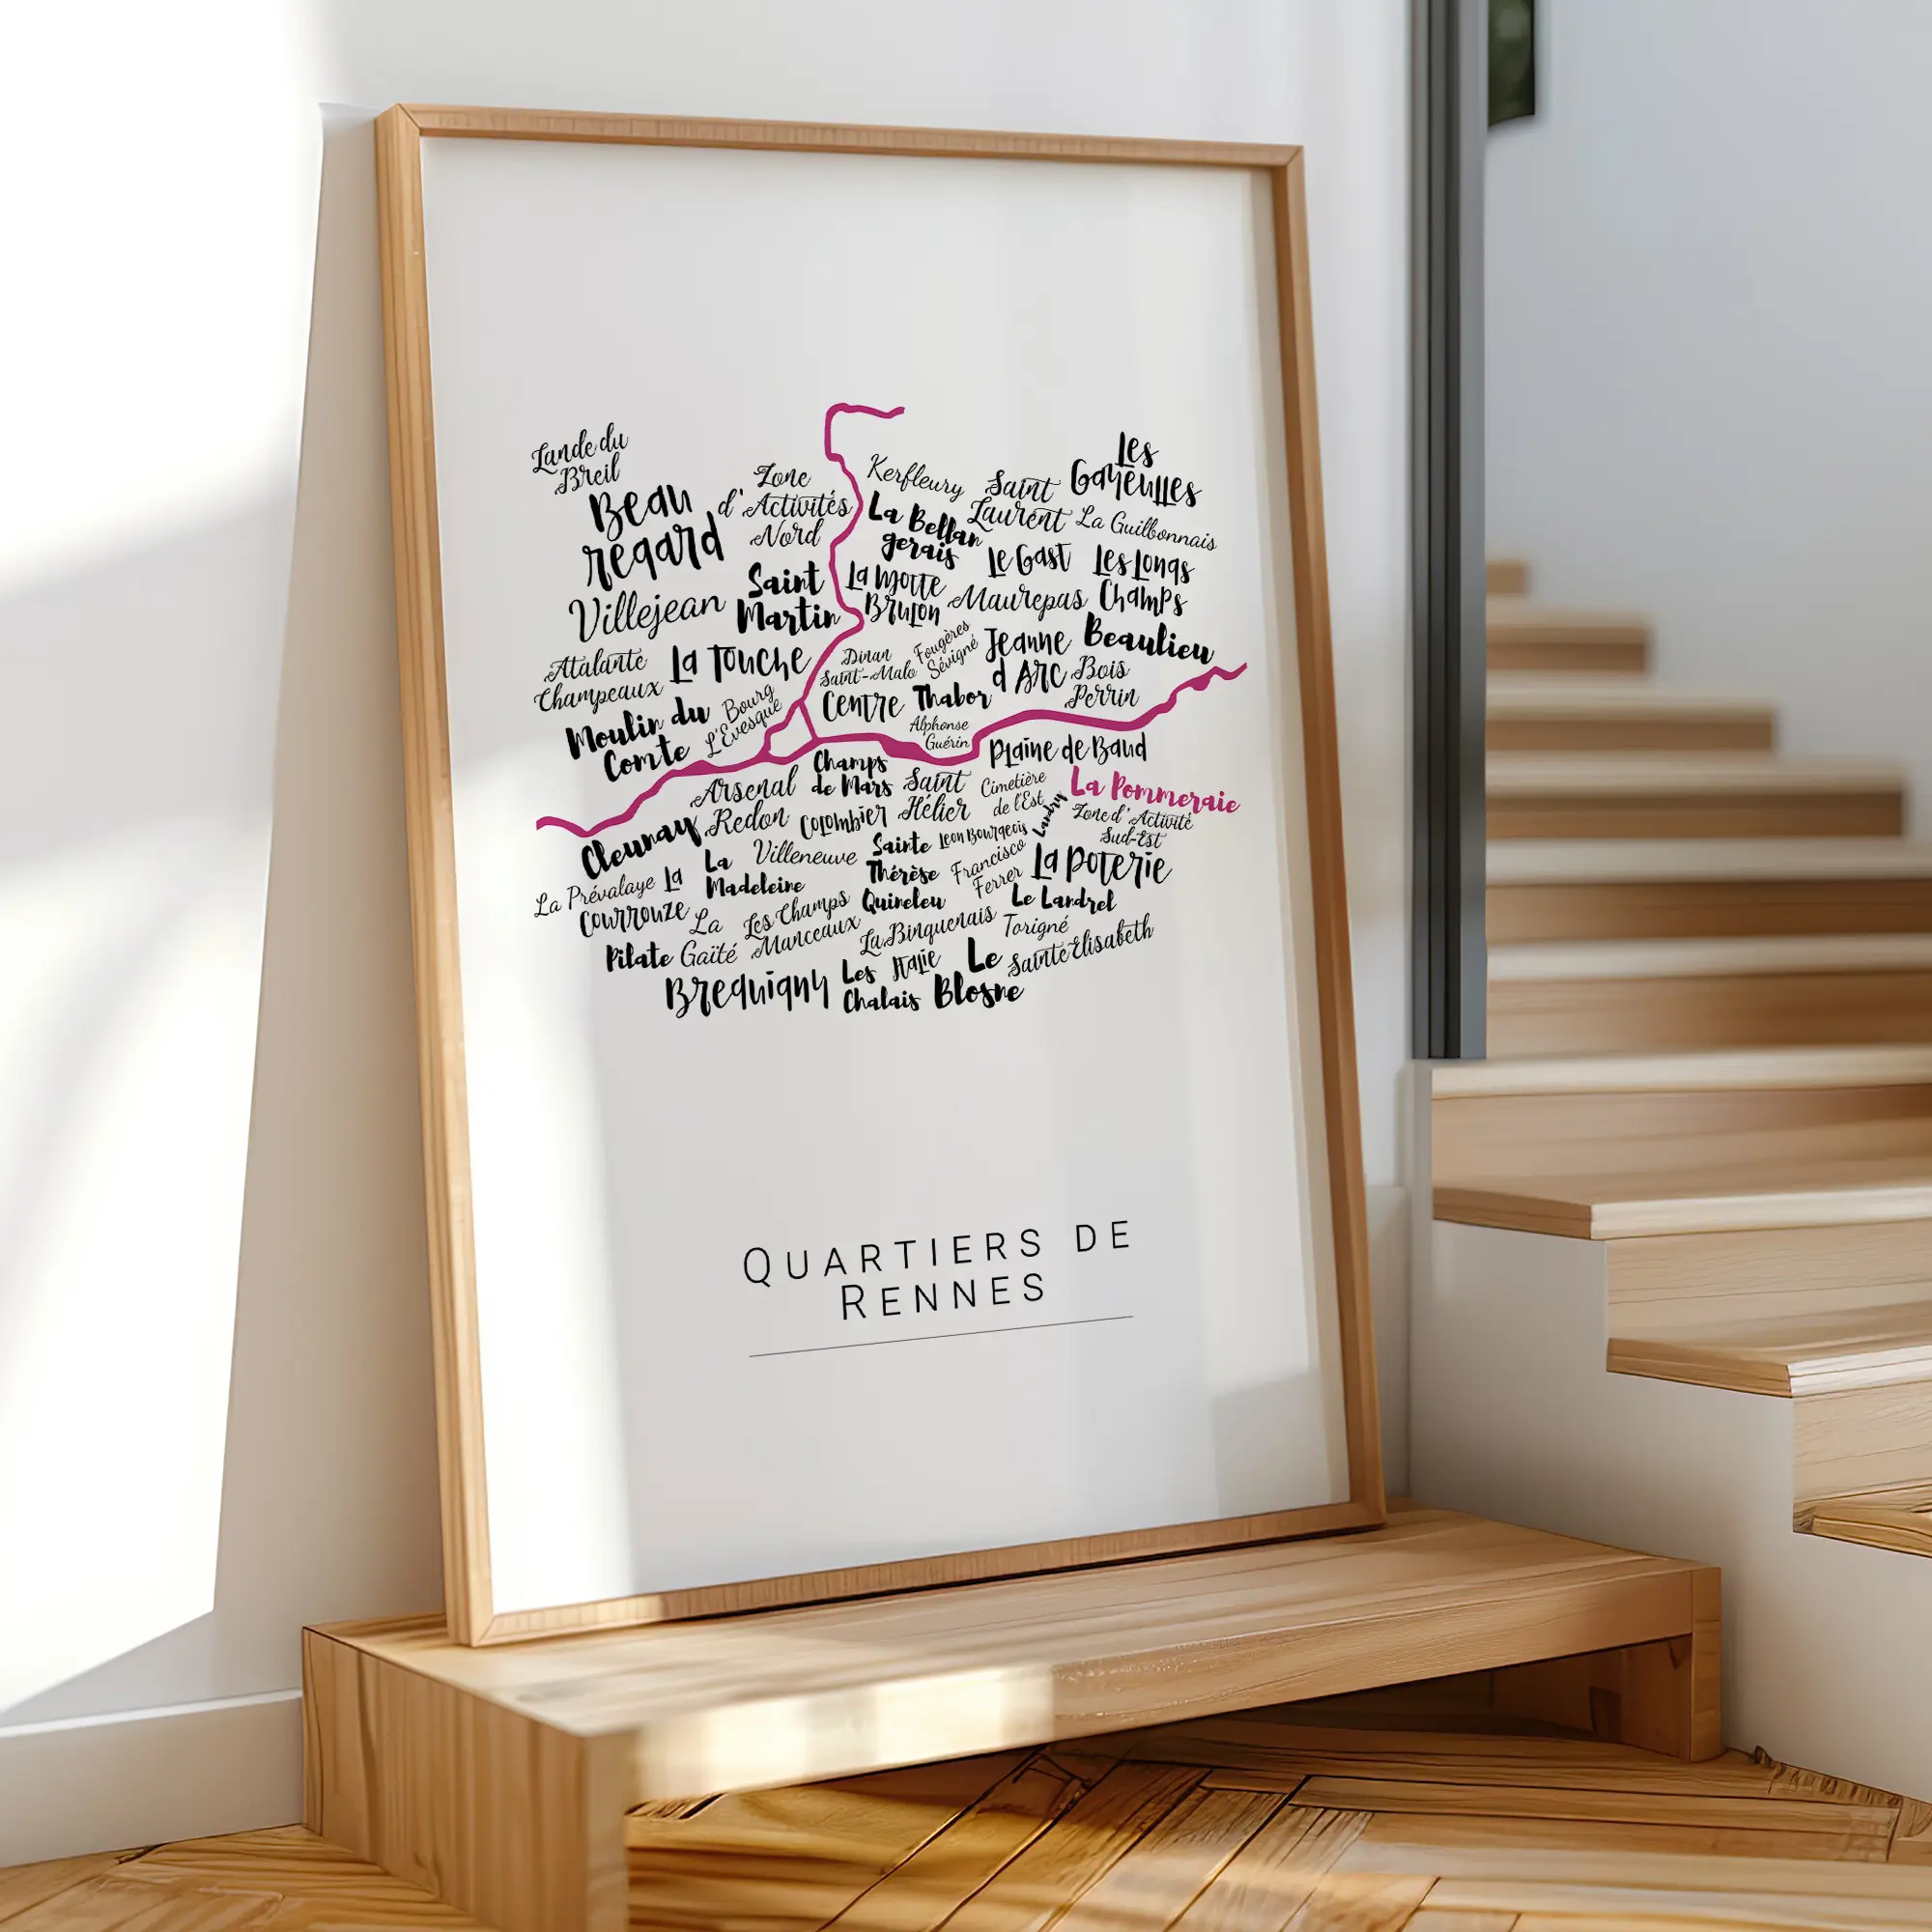 Lande du
Breil
Beau
regard
Zone
d'Activités
Nord
Kerfleury
Saint
Laurent
Les
Gayeulles
La Bellan
gerais
La Guilbonnais
Le Gast
Les Longs
Champs
Villejean
Saint
Martin
La Motte
Brulon
Maurepas
Atalante
Champeaux
La Touche
Dinan
Saint-Malo
Fougères
Sévigné
Jeanne
d'Arc
Beaulieu
Bois
Perrin
Moulin du
Comte
Bourg
L'Evesque
Centre
Thabor
Alphonse
Guérin
Plaine de Baud
Arsenal
Redon
Champs
de Mars
Colombier
Saint
Hélier
Cimetière
de l'Est
Landry
La Pommeraie
Zone d'Activité
Sud-Est
Cleunay
La
Madeleine
Villeneuve
Sainte
Thérèse
Leon Bourgeois
Francisco
Ferrer
La Poterie
La Prévalaye
La
Courrouze
La
Gaïté
Les Champs
Manceaux
Quineleu
Le Landrel
Pilate
La Binquenais
Torigné
Brequigny
Les
Chalais
Italie
Le
Blosne
Sainte Elisabeth
Quartiers de
Rennes